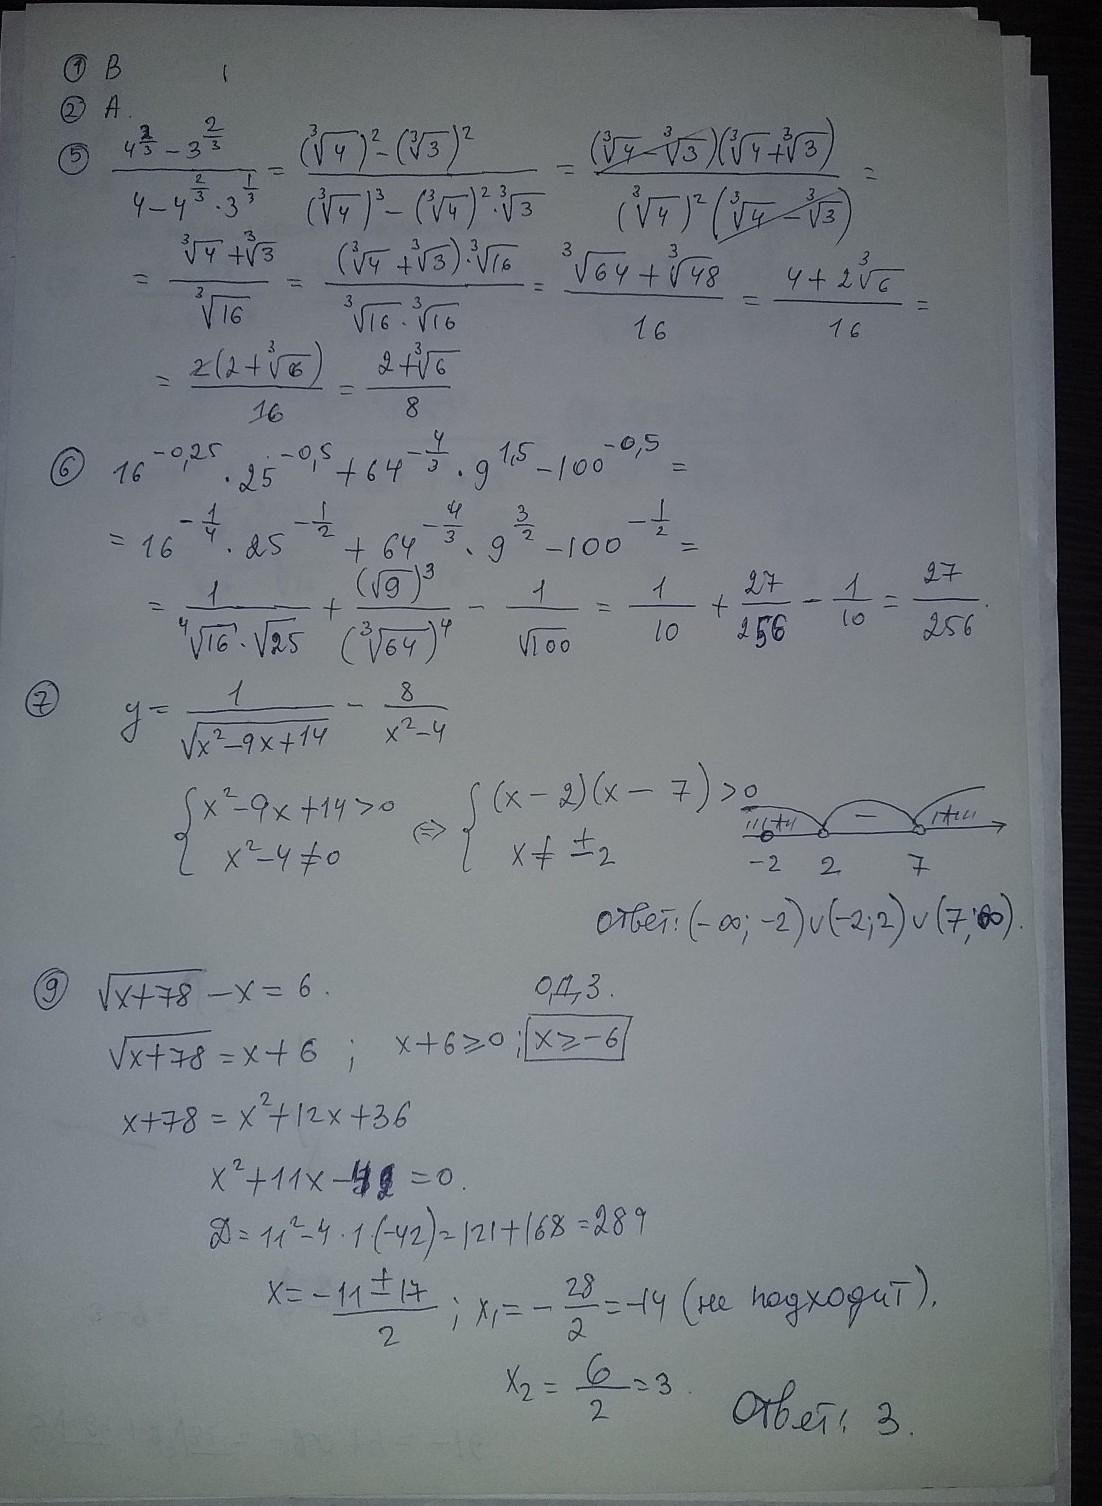 ① В
② А.
⑤ (4^(2/3) − 3^(2/3))/(4 − 4^(2/3)·3^(1/3)) = ((∛4)² − (∛3)²)/((∛4)³ − (∛4)²·∛3) = ((∛4 − ∛3)(∛4 + ∛3))/((∛4)²(∛4 − ∛3)) =
= (∛4 + ∛3)/∛16 = ((∛4 + ∛3)·∛16)/(∛16·∛16) = (∛64 + ∛48)/16 = (4 + 2∛6)/16 =
= 2(2 + ∛6)/16 = (2 + ∛6)/8
⑥ 16^(−0,25)·25^(−0,5) + 64^(−4/3)·9^(1,5) − 100^(−0,5) =
= 16^(−1/4)·25^(−1/2) + 64^(−4/3)·9^(3/2) − 100^(−1/2) =
= 1/(∜16·√25) + (√9)³/(∛64)⁴ − 1/√100 = 1/10 + 27/256 − 1/10 = 27/256.
⑦ y = 1/√(x²−9x+14) − 8/(x²−4)
{x²−9x+14>0 ⇔ {(x−2)(x−7)>0
x²−4≠0 x≠±2
+ − +
−2 2 7
ответ: (−∞; −2)∪(−2; 2)∪(7; ∞).
⑨ √(x+78) − x = 6. О,Д,З.
√(x+78) = x+6 ; x+6≥0 ; x≥−6
x+78 = x²+12x+36
x²+11x−42 = 0.
Д = 11²−4·1(−42) = 121+168 = 289
x = (−11±17)/2 ; x₁ = −28/2 = −14 (не подходит).
x₂ = 6/2 = 3.
Ответ: 3.